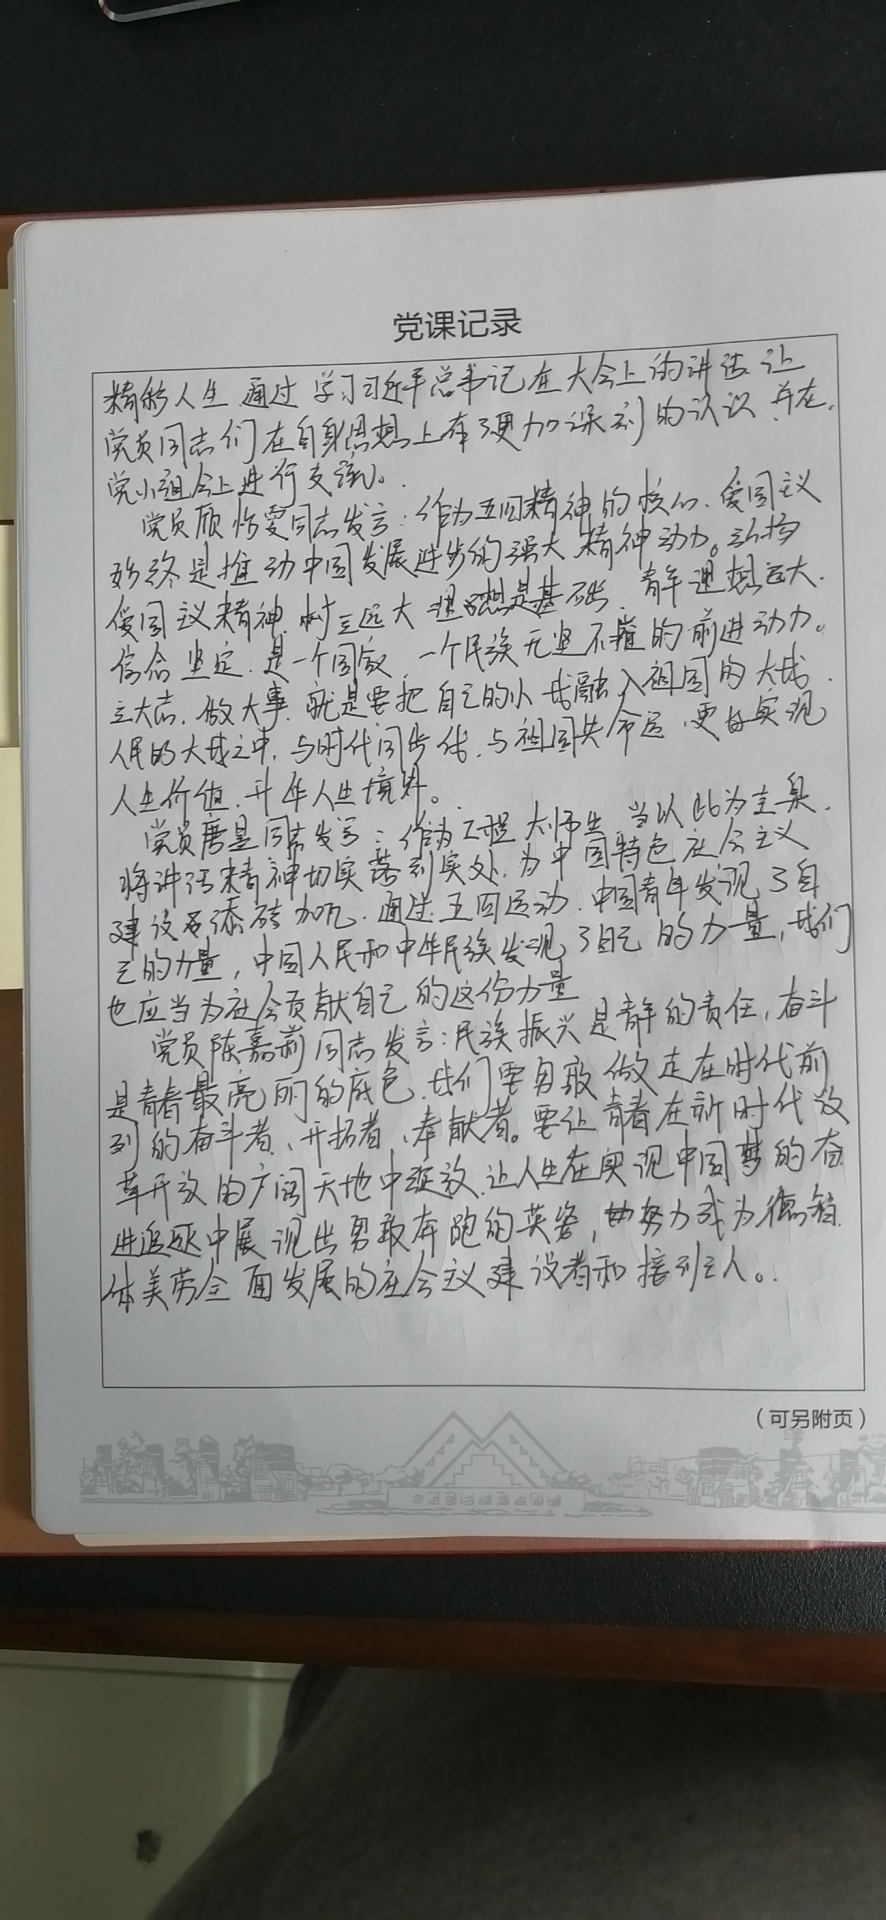 党课记录
精彩人生 通过 学习习近平总书记在大会上的讲话 让
党员同志们在自身思想上有了更加深刻的认识 并在
党小组会上进行交流。
党员顾怡雯同志发言：作为五四精神的核心、爱国主义
始终是推动中国发展进步的强大精神动力。弘扬
爱国主义精神，树立远大理想是基础、青年理想远大、
信念坚定，是一个国家、一个民族无坚不摧的前进动力。
立大志、做大事，就是要把自己的小我融入祖国的大我、
人民的大我之中，与时代同步伐、与祖国共命运、更好实现
人生价值、升华人生境界。
党员唐是同志发言：作为工程大师生，当以此为主臬、
将讲话精神切实落到实处，为中国特色社会主义
建设添砖加瓦。通过五四运动，中国青年发现了自
己的力量，中国人民和中华民族发现了自己的力量，我们
也应当为社会贡献自己的这份力量
党员陈嘉莉同志发言：民族振兴是青年的责任，奋斗
是青春最亮丽的底色，我们要勇敢做走在时代前
列的奋斗者、开拓者、奉献者。要让青春在新时代改
革开放的广阔天地中绽放，让人生在实现中国梦的奋
进追逐中展现出勇敢奔跑的英姿，努力成为德智
体美劳全面发展的社会主义建设者和接班人。
（可另附页）